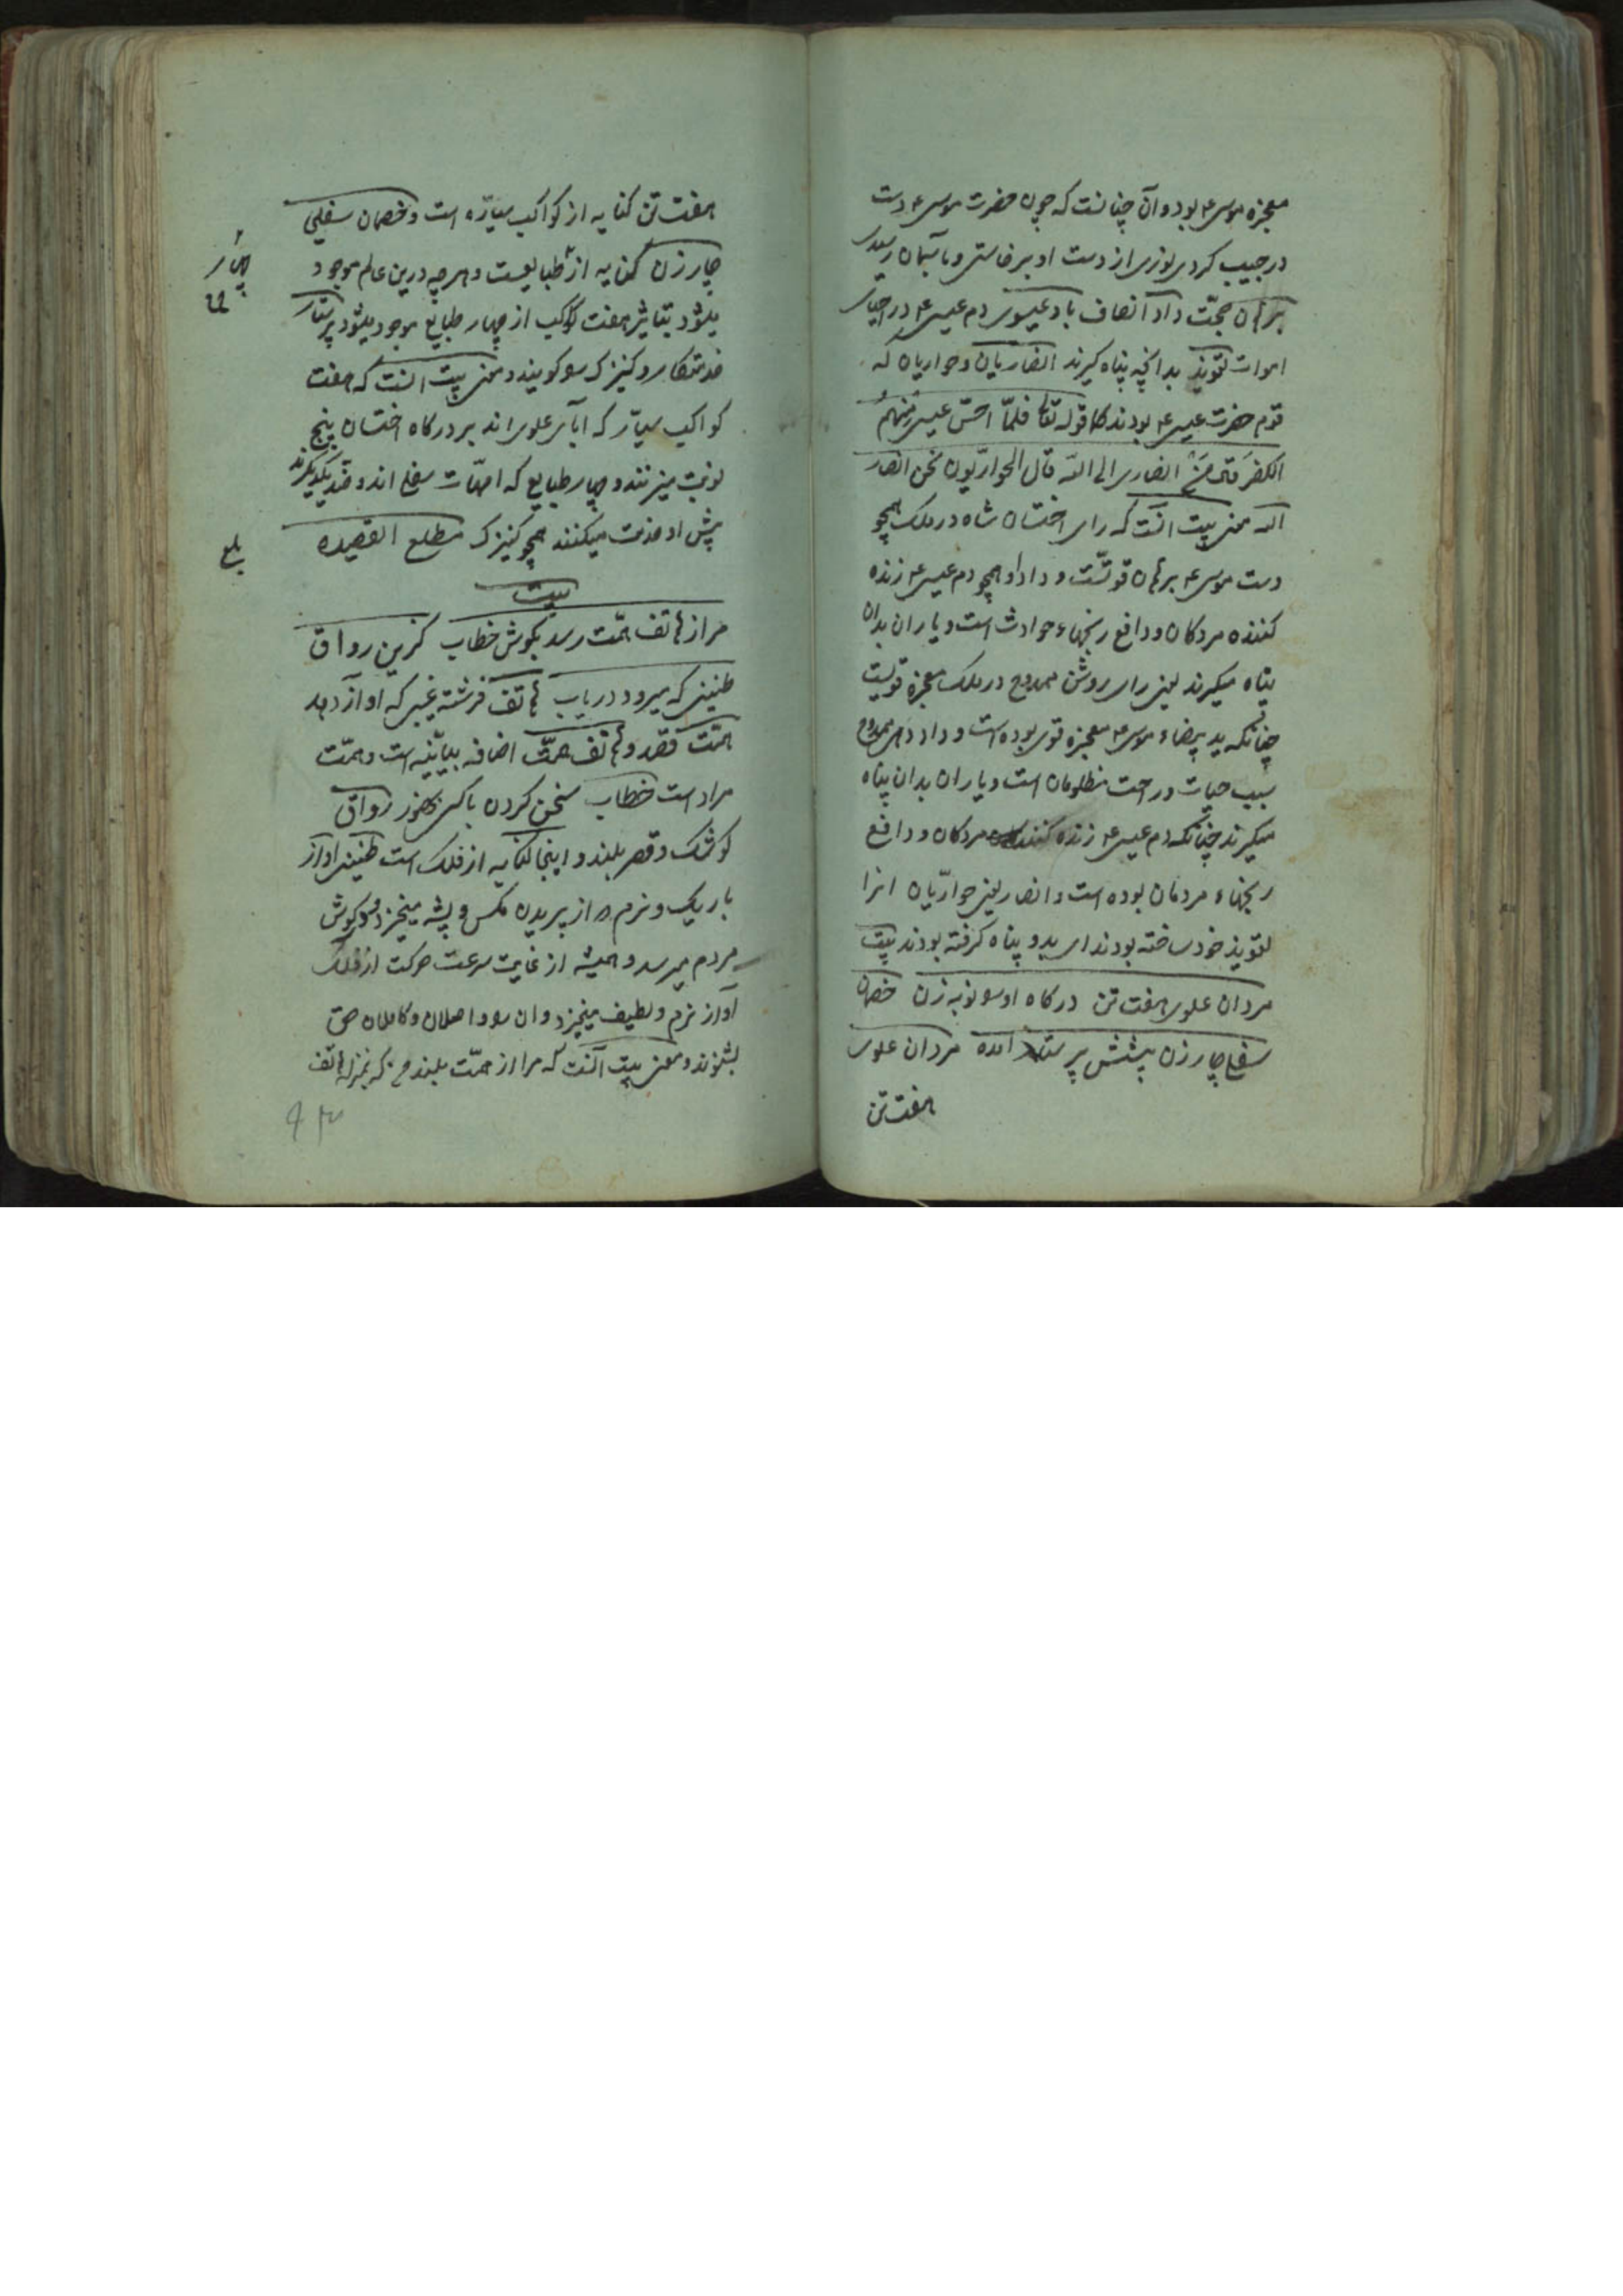 معجزه موسی ع بود و آن چنانست که چون حضرت موسی ع دست
در جیب کردی نوری از دست او برخاستی و باسمان رسیدی
برهان حجّت داد انصاف باد عیسوی دم عیسی ع در احیاء
اموات تعویذ بدانچه پناه گیرند انصاریان و حواریان که
قوم حضرت عیسی ع بودند کما قوله تعا فلمّا احسّ عیسی منهم
الکفر قال من انصاری الی الله قال الحواریّون نحن انصار
الله معنی بیت انست که رای اختسان شاه در ملک همچو
دست موسی ع برهان قویّست و داد او همچو دم عیسی ع زنده
کننده مردکان و دافع رنجهاء حوادث است و یاران بدان
پناه میکیرند یعنی رای روشن ممدوح در ملک معجزه قویست
چنانکه ید بیضاء موسی ع معجزه قوی بوده است و داد دهی ممدوح
سبب حیات و راحت مظلومان است و یاران بدان پناه
میکیرند چنانکه دم عیسی ع زنده کننده مردکان و دافع
رنجهاء مردمان بوده است و انصار یعنی حواریّان انرا
تعویذ خود ساخته بودند ای بدو پناه کرفته بودند بیت
مردان علوی هفت تن درکاه او سو نوبه زن خصمان
سفلی چار زن پیشش پرستار امده مردان علوی
هفت تن
هفت تن کنایه از کواکب سیّاره است و خصمان سفلی
چار زن کنایه از طبایعست و هرچه درین عالم موجود
چهار
میشود بتاثیر هفت کواکب از چهار طبایع موجود میشود پرستار
خدمتکار و کنیزک سو کویند و معنی بیت انست که هفت
کواکب سیّار که ابآی علوی اند بر درکاه اختسان پنج
نوبت میزنند و چهار طبایع که امهّات سفلی اند و ضد یکدیکرند
پیش او خدمت میکنند همچو کنیزک مطلع القصیده
بلغ
بیت
مرا ز هاتف همّت رسد بکوش خطاب کزین رواق
طنینی که میرود دریاب هاتف فرشته غیبی که اوآز دهد
همّت قصد و هاتف همّت اضافه بیانیّه است و همّت
مراد است خطاب سخن کردن باکسی بحضور رواق
کوشک و قصر بلند و اینجا کنایه از فلک است طنین اواز
باریک و نرم از پریدن مکس و پشه میخیزد و در کوش
مردم میرسد و همیشه از غایت سرعت حرکت از فلک
آواز نرم و لطیف میخیزد و ان سو واصلان و کاملان حق
بشنوند و معنی بیت آنست که مرا از همّت بلند من که بمنزله هاتف